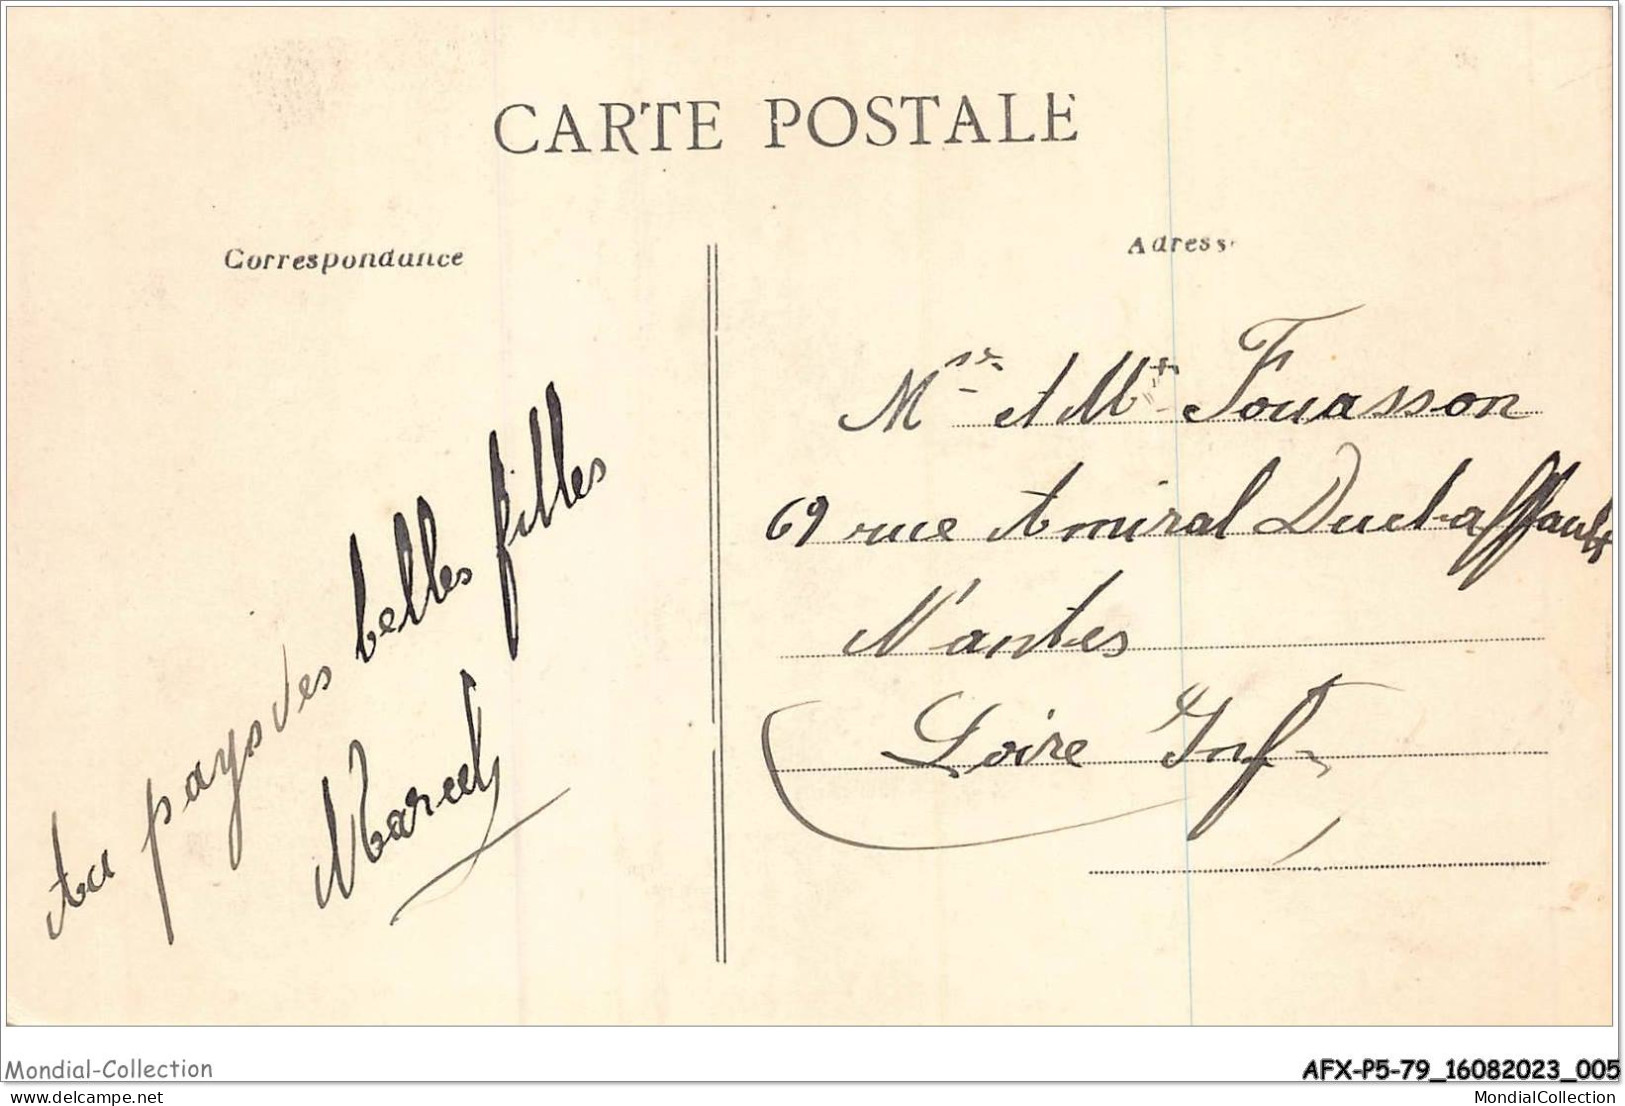 CARTE POSTALE
Correspondance
Adresse
Au pays des belles filles
Marcel
Mr et Me Fouasson
69 rue Amiral Duchaffault
Nantes
Loire Inf
Mondial-Collection
AFX-P5-79_16082023_005
delcampe.net
MondialCollection